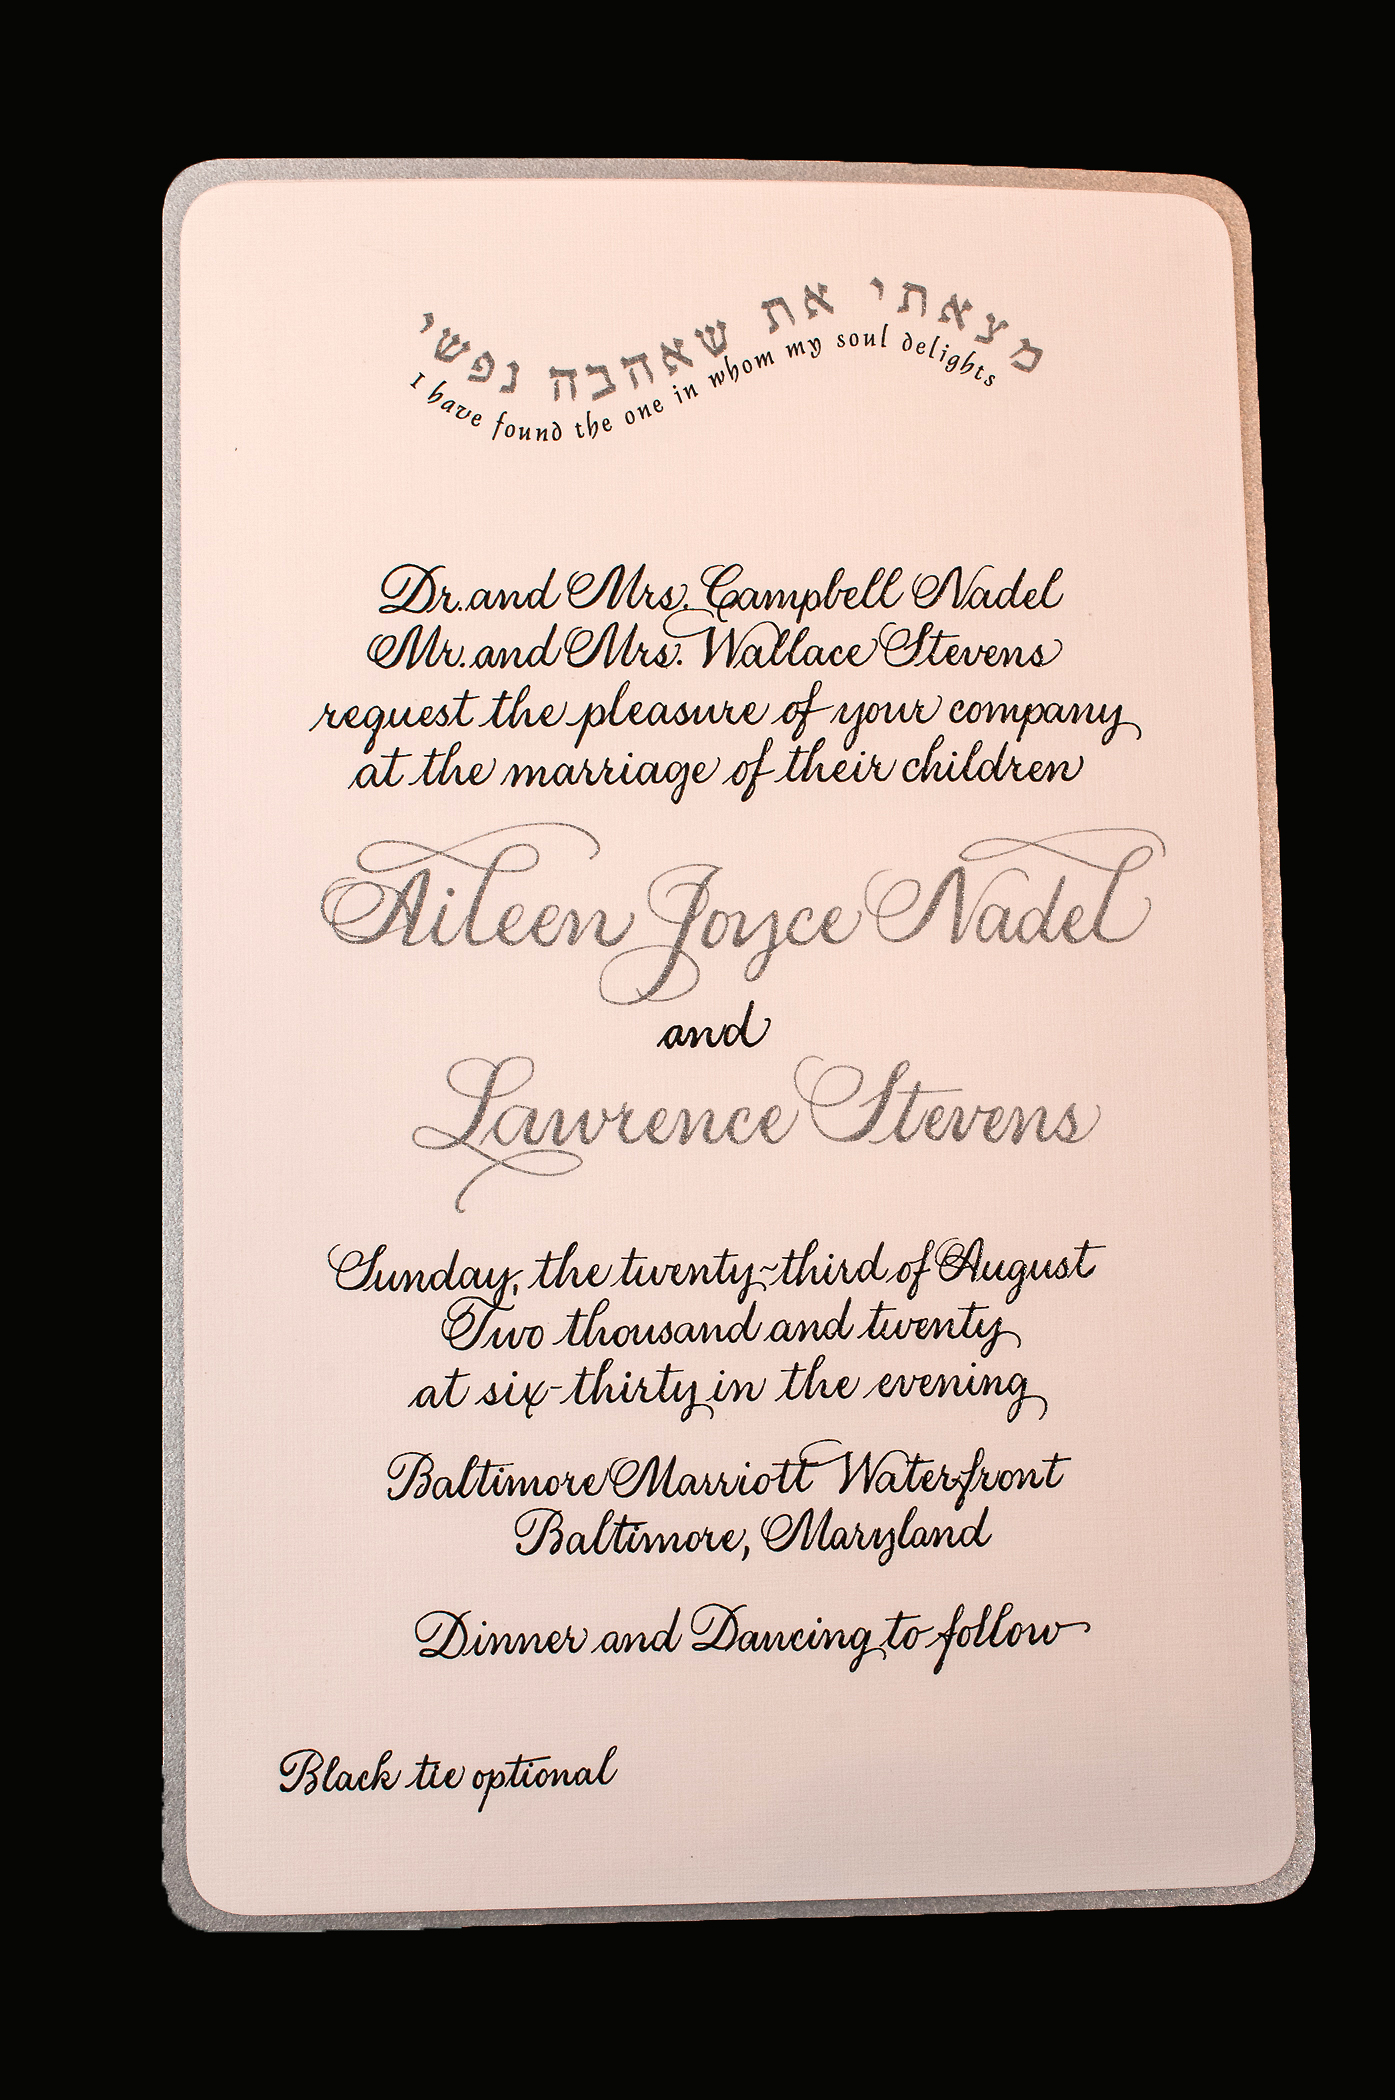 מצאתי את שאהבה נפשי
I have found the one in whom my soul delights
Dr. and Mrs. Campbell Nadel
Mr. and Mrs. Wallace Stevens
request the pleasure of your company
at the marriage of their children
Aileen Joyce Nadel
and
Lawrence Stevens
Sunday, the twenty~third of August
Two thousand and twenty
at six-thirty in the evening
Baltimore Marriott Waterfront
Baltimore, Maryland
Dinner and Dancing to follow
Black tie optional